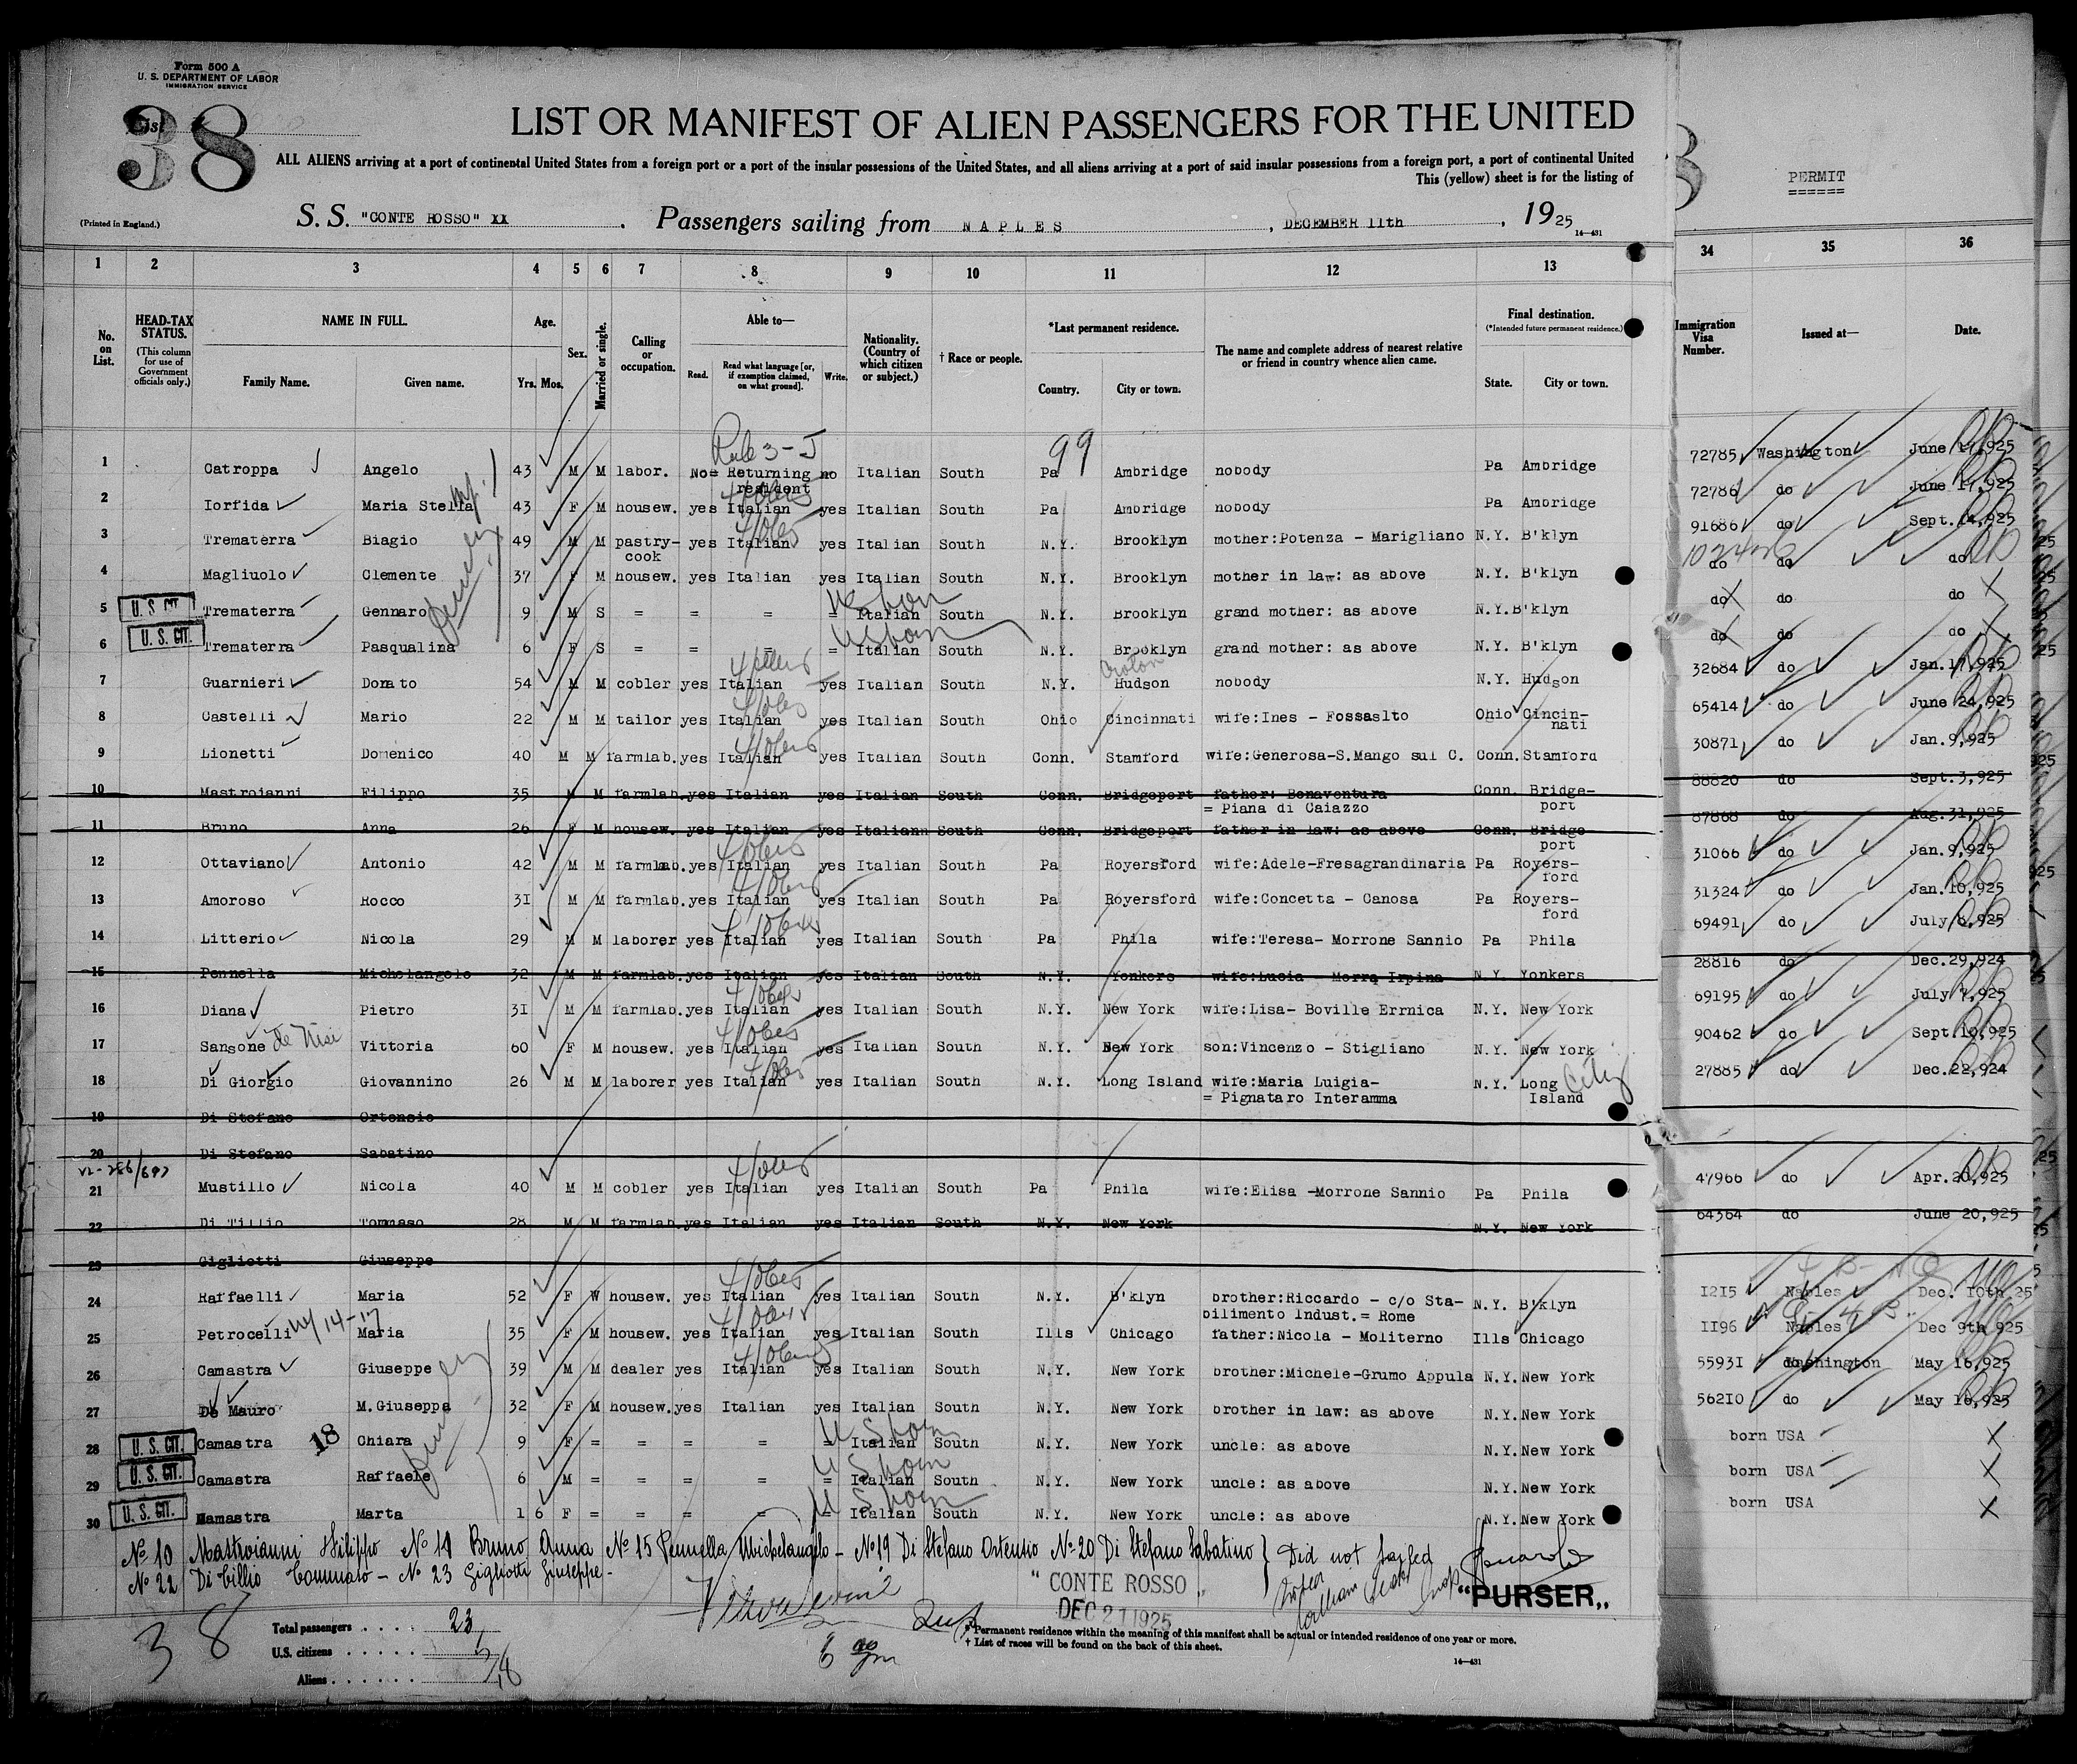 Form 500 A
U. S. DEPARTMENT OF LABOR
IMMIGRATION SERVICE
List 38
LIST OR MANIFEST OF ALIEN PASSENGERS FOR THE UNITED
ALL ALIENS arriving at a port of continental United States from a foreign port or a port of the insular possessions of the United States, and all aliens arriving at a port of said insular possessions from a foreign port, a port of continental United
This (yellow) sheet is for the listing of
PERMIT
======
(Printed in England.) S. S. "CONTE ROSSO" XX . Passengers sailing from NAPLES , DECEMBER 11th , 1925
14—431
1 2 3 4 5 6 7 8 9 10 11 12 13 34 35 36
No. on List. HEAD-TAX STATUS. (This column for use of Government officials only.) NAME IN FULL. Family Name. Given name. Age. Yrs. Mos. Sex. Married or single. Calling or occupation. Able to— Read. Read what language [or, if exemption claimed, on what ground]. Write. Nationality. (Country of which citizen or subject.) † Race or people. *Last permanent residence. Country. City or town. The name and complete address of nearest relative or friend in country whence alien came. Final destination. (*Intended future permanent residence.) State. City or town. Immigration Visa Number. Issued at— Date.
Rule 3-J 99
1 Catroppa Angelo 43 M M labor. No= Returning resident no Italian South Pa Ambridge nobody Pa Ambridge 72785 Washington June 17,925
2 Iorfida Maria Stella 43 F M housew. yes Italian yes Italian South Pa Ambridge nobody Pa Ambridge 72786 do June 17,925
3 Trematerra Biagio 49 M M pastry-cook yes Italian yes Italian South N.Y. Brooklyn mother:Potenza - Marigliano N.Y. B'klyn 91686 do Sept.14,925
4 Magliuolo Clemente 37 F M housew. yes Italian yes Italian South N.Y. Brooklyn mother in law: as above N.Y. B'klyn do do do
5 U. S. CIT. Trematerra Gennaro 9 M S = = = = Italian South N.Y. Brooklyn grand mother: as above N.Y.B'klyn do do do
6 U. S. CIT. Trematerra Pasqualina 6 F S = = = = Italian South N.Y. Brooklyn grand mother: as above N.Y. B'klyn do do do
7 Guarnieri Donato 54 M M cobler yes Italian yes Italian South N.Y. Croton Hudson nobody N.Y. Hudson 32684 do Jan.17,925
8 Castelli Mario 22 M M tailor yes Italian yes Italian South Ohio Cincinnati wife:Ines - Fossaslto Ohio Cincin-nati 65414 do June 24,925
9 Lionetti Domenico 40 M M farmlab. yes Italian yes Italian South Conn. Stamford wife:Generosa-S.Mango sul C. Conn. Stamford 30871 do Jan.9,925
10 Mastroianni Filippo 35 M M farmlab. yes Italian yes Italian South Conn. Bridgeport father: Bonaventura = Piana di Caiazzo Conn. Bridge-port 88820 do Sept.3,925
11 Bruno Anna 26 F M housew. yes Italian yes Italiann South Conn. Bridgeport father in law: as above Conn. Bridge port 87868 do Aug.31,925
12 Ottaviano Antonio 42 M M farmlab. yes Italian yes Italian South Pa Royersford wife:Adele-Fresagrandinaria Pa Royers-ford 31066 do Jan.9,925
13 Amoroso Rocco 3I M M farmlab. yes Italian yes Italian South Pa Royersford wife:Concetta - Canosa Pa Royers-ford 31324 do Jan.10,925
14 Litterio Nicola 29 M M laborer yes Italian yes Italian South Pa Phila wife:Teresa- Morrone Sannio Pa Phila 69491 do July 8,925
15 Pennella Michelangelo 32 M M farmlab. yes Italian yes Italian South N.Y. Yonkers wife:Lucia - Morra Irpina N.Y. Yonkers 28816 do Dec.29,924
16 Diana Pietro 3I M M farmlab. yes Italian yes Italian South N.Y. New York wife:Lisa- Boville Errnica N.Y. New York 69195 do July 7,925
17 Sansone de Nisi Vittoria 60 F M housew. yes Italian yes Italian South N.Y. New York son:Vincenzo - Stigliano N.Y. New York 90462 do Sept.10,925
18 Di Giorgio Giovannino 26 M M laborer yes Italian yes Italian South N.Y. Long Island wife:Maria Luigia- = Pignataro Interamma N.Y. Long Island City 27885 do Dec.22,924
19 Di Stefano Ortensio
20 Di Stefano Sabatino
21 Mustillo Nicola 40 M M cobler yes Italian yes Italian South Pa Phila wife:Elisa -Morrone Sannio Pa Phila 47966 do Apr.20,925
22 Di Tillio Tommaso 28 M M farmlab. yes Italian yes Italian South N.Y. New York N.Y. New York 64364 do June 20,925
23 Gigliotti Giuseppe
24 Raffaelli Maria 52 F W housew. yes Italian yes Italian South N.Y. B'klyn brother:Riccardo - c/o Sta-bilimento Indust.= Rome N.Y. B'klyn I2I5 Naples Dec. 10th 25
25 Petrocelli Maria 35 F M housew. yes Italian yes Italian South Ills Chicago father:Nicola - Moliterno Ills Chicago II96 Naples Dec 9th 925
26 Camastra Giuseppe 39 M M dealer yes Italian yes Italian South N.Y. New York brother:Michele-Grumo Appula N.Y. New York 5593I Washington May 16,925
27 De Mauro M.Giuseppa 32 F M housew. yes Italian yes Italian South N.Y. New York brother in law: as above N.Y. New York 562I0 do May 16,925
28 U. S. CIT. Camastra 18 Chiara 9 F = = = = = Italian South N.Y. New York uncle: as above N.Y. New York born USA
29 U. S. CIT. Camastra Raffaele 6 M = = = = = Italian South N.Y. New York uncle: as above N.Y. New York born USA
30 U. S. CIT. Camastra Marta 1 6 F = = = = = Italian South N.Y. New York uncle: as above N.Y. New York born USA
No 10 Mastroianni Filippo No 11 Bruno Anna No 15 Pennella Michelangelo - No 19 Di Stefano Ortensio No 20 Di Stefano Sabatino } Did not sailed
No 22 Di Tillio Tommaso - No 23 Gigliotti Giuseppe -
" CONTE ROSSO "
DEC 21 1925
"PURSER"
38
Total passengers . . . . 23
U.S. citizens . . . . . .
Aliens . . . . . . . 18
* Permanent residence within the meaning of this manifest shall be actual or intended residence of one year or more.
† List of races will be found on the back of this sheet.
14—431